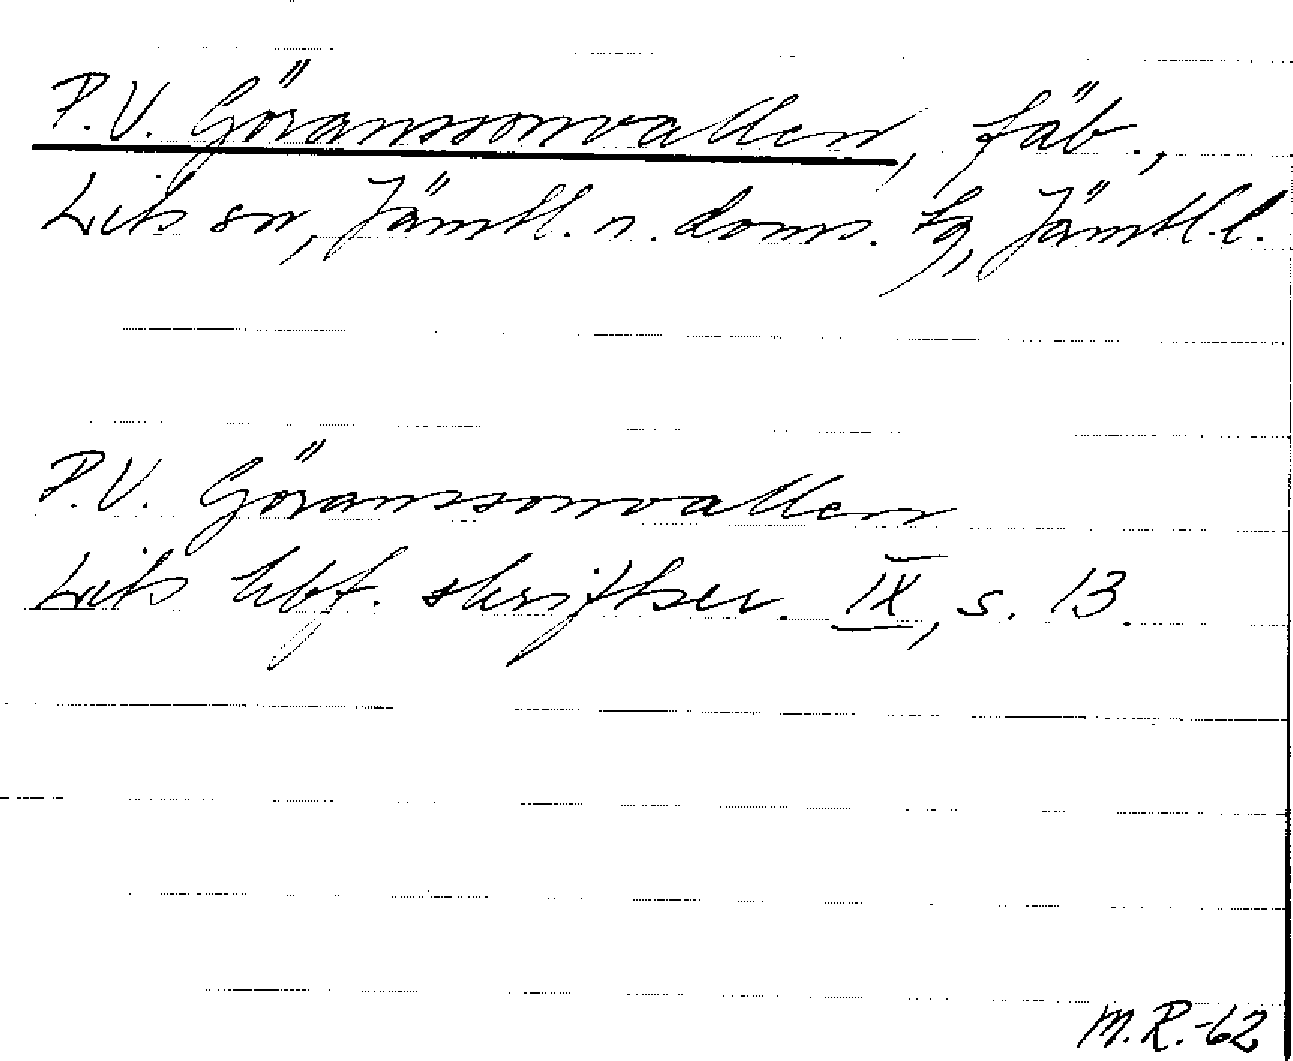 P.V. Göranssonvallen, fäb.,
Lits sn, Jämtl. n. doms. tg, Jämtl. l.
P.V. Göranssonvallen
Lits hbf. skriftser. IX, s. 13.
M.R.-62